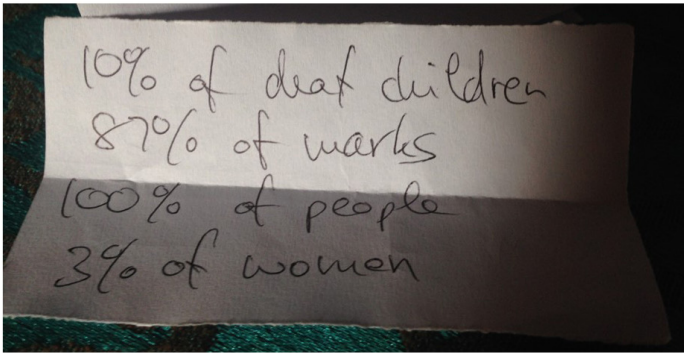 10% of deaf children
87% of marks
100% of people
3% of women